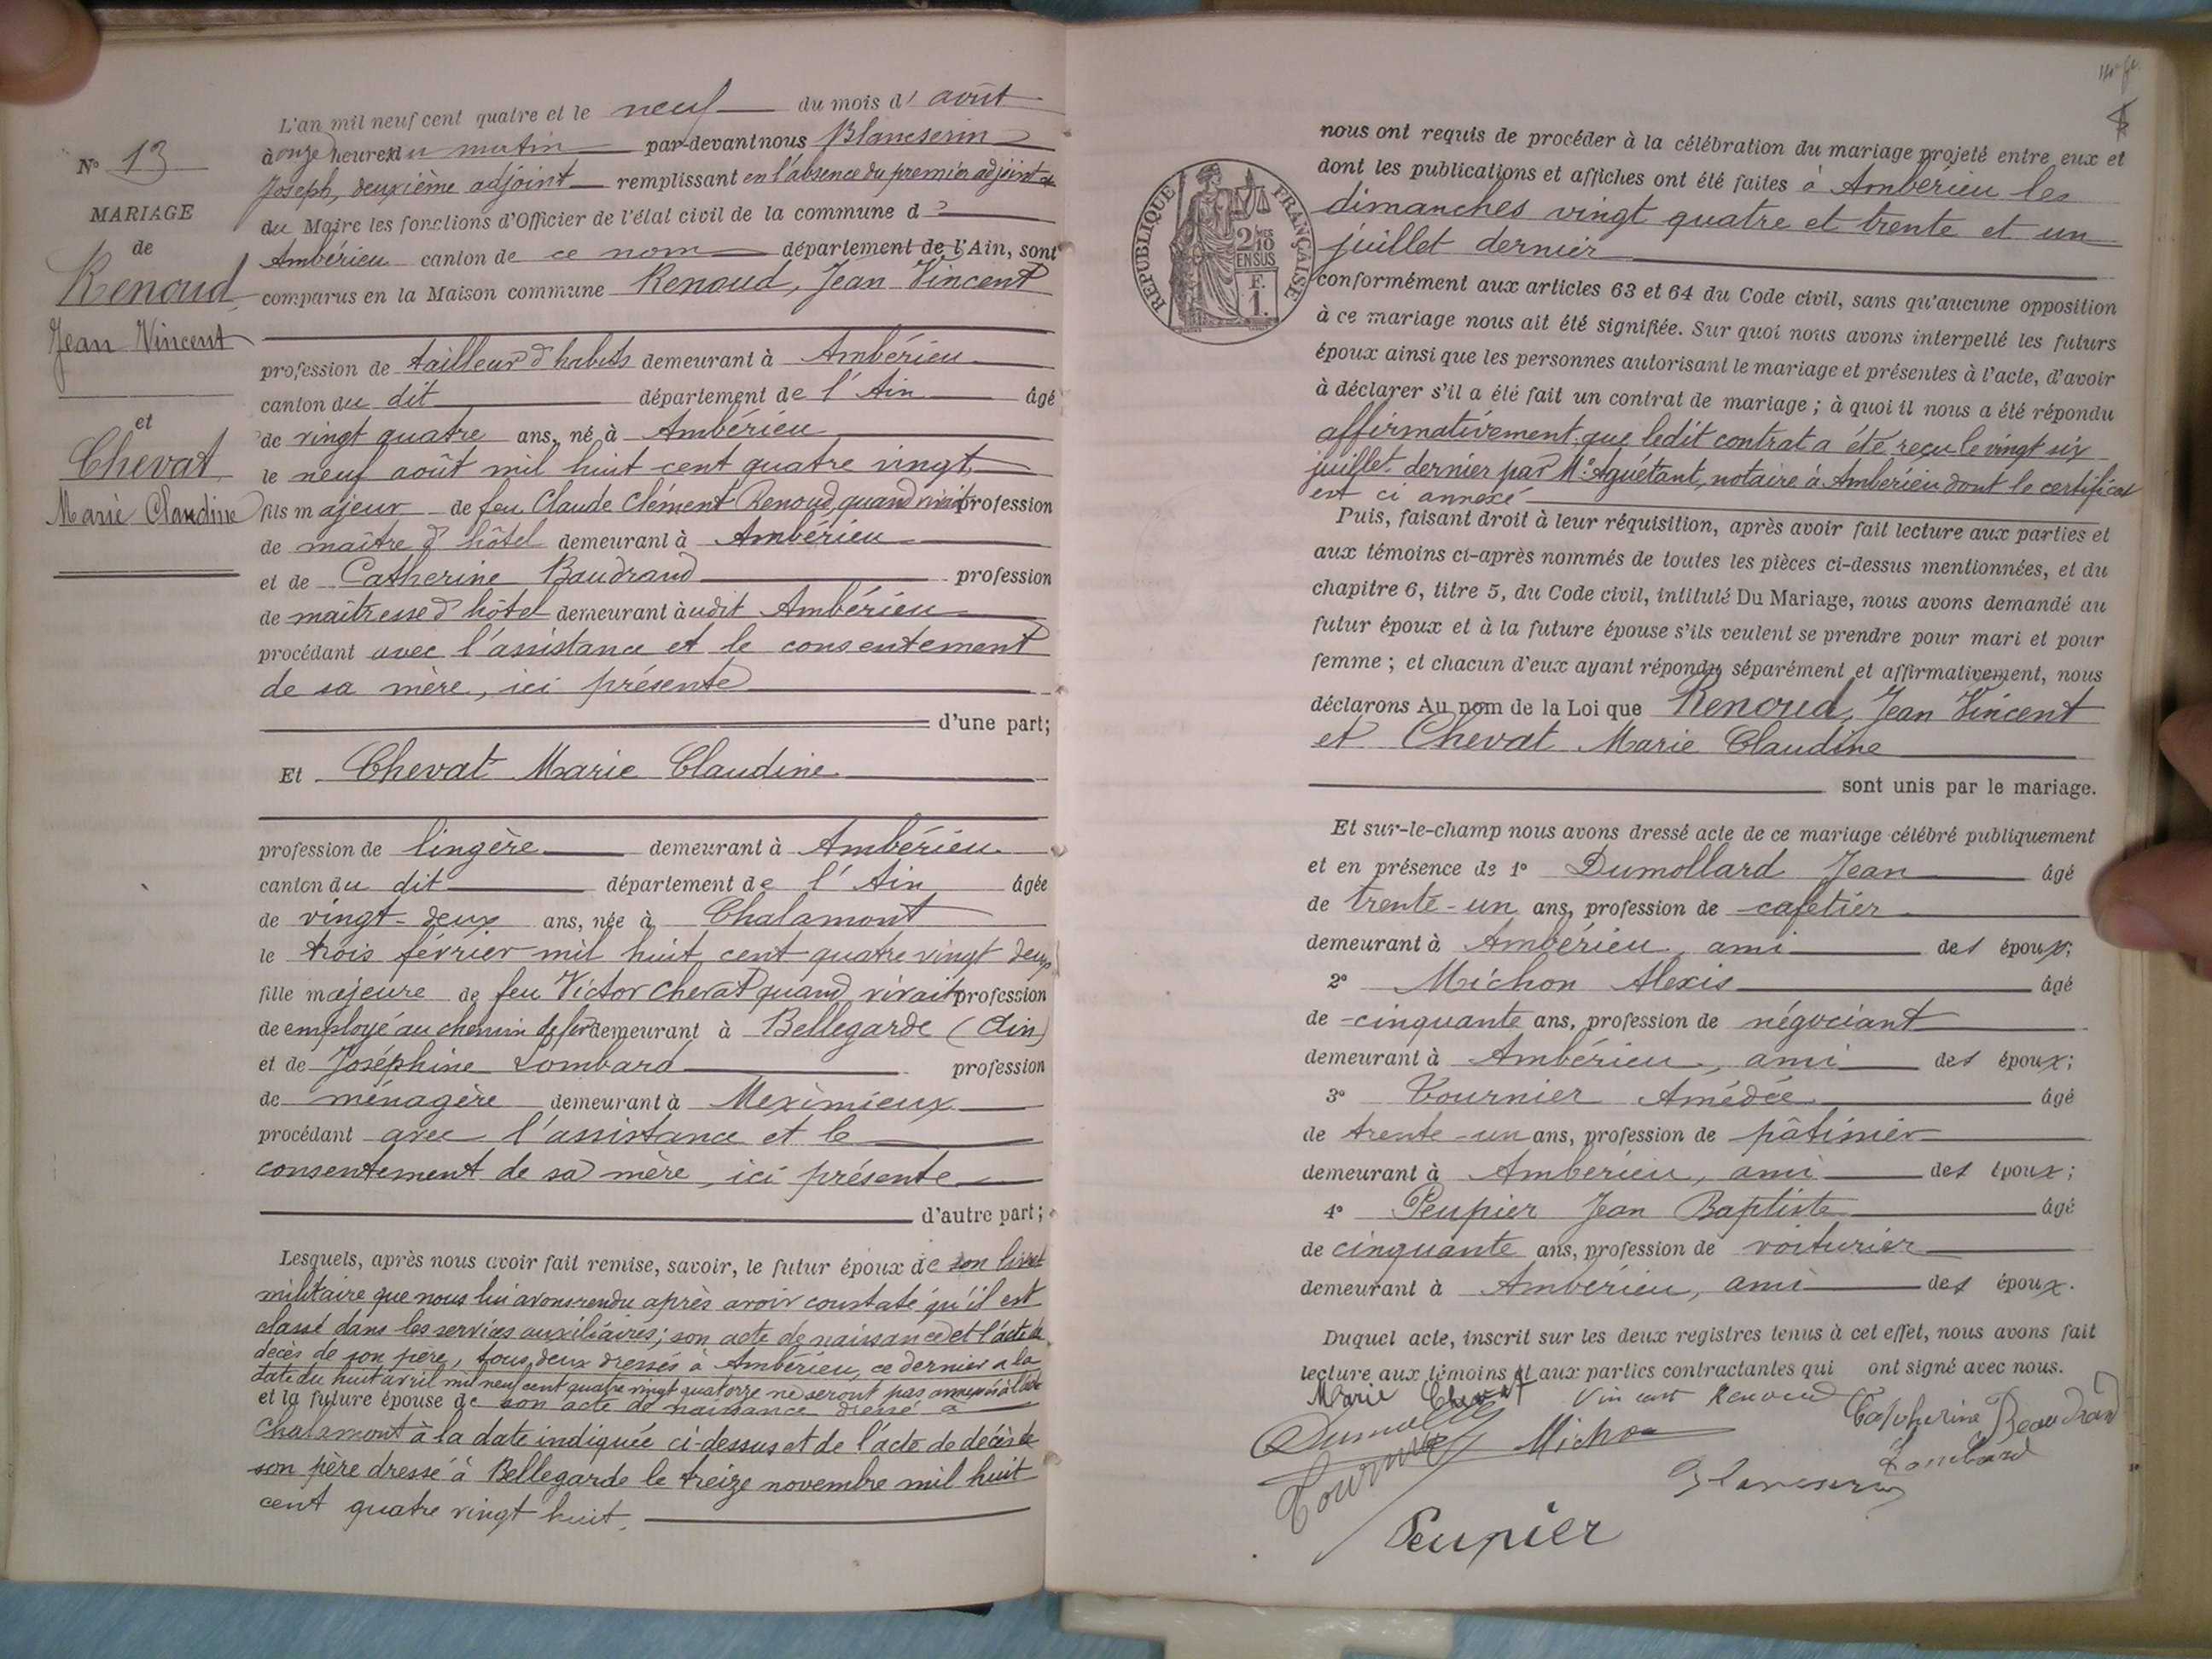 N° 13
MARIAGE
de
Renoud
Jean Vincent
et
Chevat
Marie Claudine
L'an mil neuf cent quatre et le neuf du mois d'août
à onze heures du matin par-devant nous Blancserin
Joseph, deuxième adjoint remplissant en l'absence du premier adjoint et
du Maire les fonctions d'Officier de l'état civil de la commune d
Ambérieu canton de ce nom département de l'Ain, sont
comparus en la Maison commune Renoud, Jean Vincent
profession de tailleur d'habits demeurant à Ambérieu
canton du dit département de l'Ain âgé
de vingt quatre ans, né à Ambérieu
le neuf août mil huit cent quatre vingt
fils majeur de feu Claude Clément Renoud quand vivait profession
de maître d'hôtel demeurant à Ambérieu
et de Catherine Baudrand profession
de maîtresse d'hôtel demeurant audit Ambérieu
procédant avec l'assistance et le consentement
de sa mère, ici présente
d'une part;
Et Chevat Marie Claudine
profession de lingère demeurant à Ambérieu
canton du dit département de l'Ain âgée
de vingt-deux ans, née à Chalamont
le trois février mil huit cent quatre vingt deux
fille majeure de feu Victor Chevat quand vivait profession
de employé au chemin de fer demeurant à Bellegarde (Ain)
et de Joséphine Lombard profession
de ménagère demeurant à Meximieux
procédant avec l'assistance et le
consentement de sa mère, ici présente
d'autre part;
Lesquels, après nous avoir fait remise, savoir, le futur époux de son livret
militaire que nous lui avons rendu après avoir constaté qu'il est
classé dans les services auxiliaires; son acte de naissance et l'acte de
décès de son père, tous deux dressés à Ambérieu, ce dernier a la
date du huit avril mil neuf cent quatre vingt quatorze ne seront pas annexés à l'acte
et la future épouse de son acte de naissance dressé à
Chalamont à la date indiquée ci-dessus et de l'acte de décès de
son père dressé à Bellegarde le treize novembre mil huit
cent quatre vingt huit.
RÉPUBLIQUE FRANÇAISE
2/10
EN SUS
F.
1.
nous ont requis de procéder à la célébration du mariage projeté entre eux et
dont les publications et affiches ont été faites à Ambérieu les
dimanches vingt quatre et trente et un
juillet dernier
conformément aux articles 63 et 64 du Code civil, sans qu'aucune opposition
à ce mariage nous ait été signifiée. Sur quoi nous avons interpellé les futurs
époux ainsi que les personnes autorisant le mariage et présentes à l'acte, d'avoir
à déclarer s'il a été fait un contrat de mariage; à quoi il nous a été répondu
affirmativement que ledit contrat a été reçu le vingt six
juillet dernier par Me Aguétant, notaire à Ambérieu dont le certificat
est ci annexé
Puis, faisant droit à leur réquisition, après avoir fait lecture aux parties et
aux témoins ci-après nommés de toutes les pièces ci-dessus mentionnées, et du
chapitre 6, titre 5, du Code civil, intitulé Du Mariage, nous avons demandé au
futur époux et à la future épouse s'ils veulent se prendre pour mari et pour
femme; et chacun d'eux ayant répondu séparément et affirmativement, nous
déclarons Au nom de la Loi que Renoud, Jean Vincent
et Chevat Marie Claudine
sont unis par le mariage.
Et sur-le-champ nous avons dressé acte de ce mariage célébré publiquement
et en présence de 1° Dumollard Jean âgé
de trente-un ans, profession de cafetier
demeurant à Ambérieu, ami des époux;
2° Michon Alexis âgé
de cinquante ans, profession de négociant
demeurant à Ambérieu, ami des époux;
3° Tournier Amédée âgé
de trente-un ans, profession de pâtissier
demeurant à Ambérieu, ami des époux;
4° Peupier Jean Baptiste âgé
de cinquante ans, profession de voiturier
demeurant à Ambérieu, ami des époux.
Duquel acte, inscrit sur les deux registres tenus à cet effet, nous avons fait
lecture aux témoins et aux parties contractantes qui ont signé avec nous.
Marie Chevat Vincent Renoud
Catherine Beaudrand
Dumollard Michon
Lombard
Tournier Blancserin
Peupier